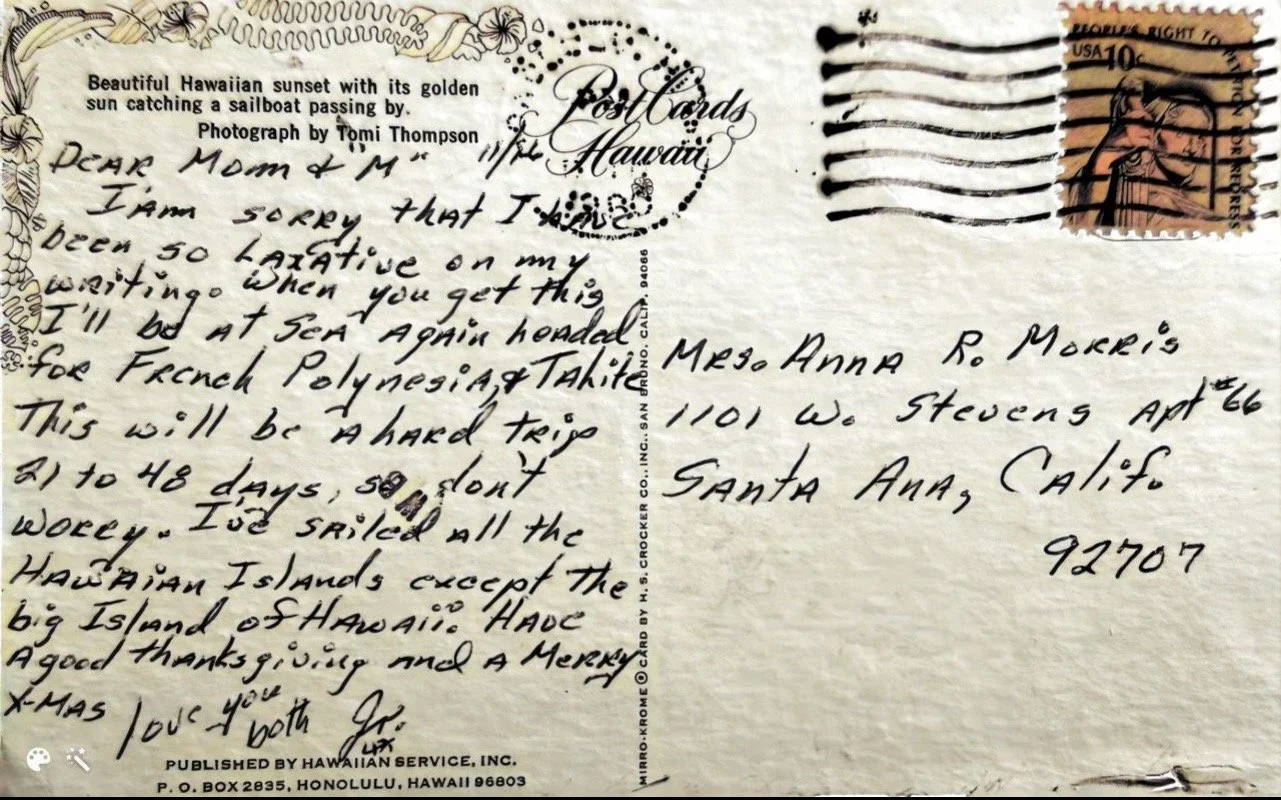 Beautiful Hawaiian sunset with its golden
sun catching a sailboat passing by.
Photograph by Tomi Thompson
Post Cards
Hawaii
PEOPLE'S RIGHT TO PETITION FOR REDRESS
USA 10c
DEAR Mom & "M"
I'am sorry that I have
been so LAXAtive on my
writing. When you get this
I'll be at Sea again headed
for French Polynesia, & Tahiti
This will be a hard trip
21 to 48 days, so don't
worry. I've sailed all the
Hawaian Islands except the
big Island of Hawaii. Have
a good thanksgiving and a Merry
X-MAS love you both Jr.
PUBLISHED BY HAWAIIAN SERVICE, INC.
P. O. BOX 2835, HONOLULU, HAWAII 96803
MIRRO-KROME ® CARD BY H. S. CROCKER CO., INC., SAN BRUNO, CALIF. 94066
Mrs. Anna R. Morris
1101 W. Stevens Apt #66
Santa Ana, Calif.
92707